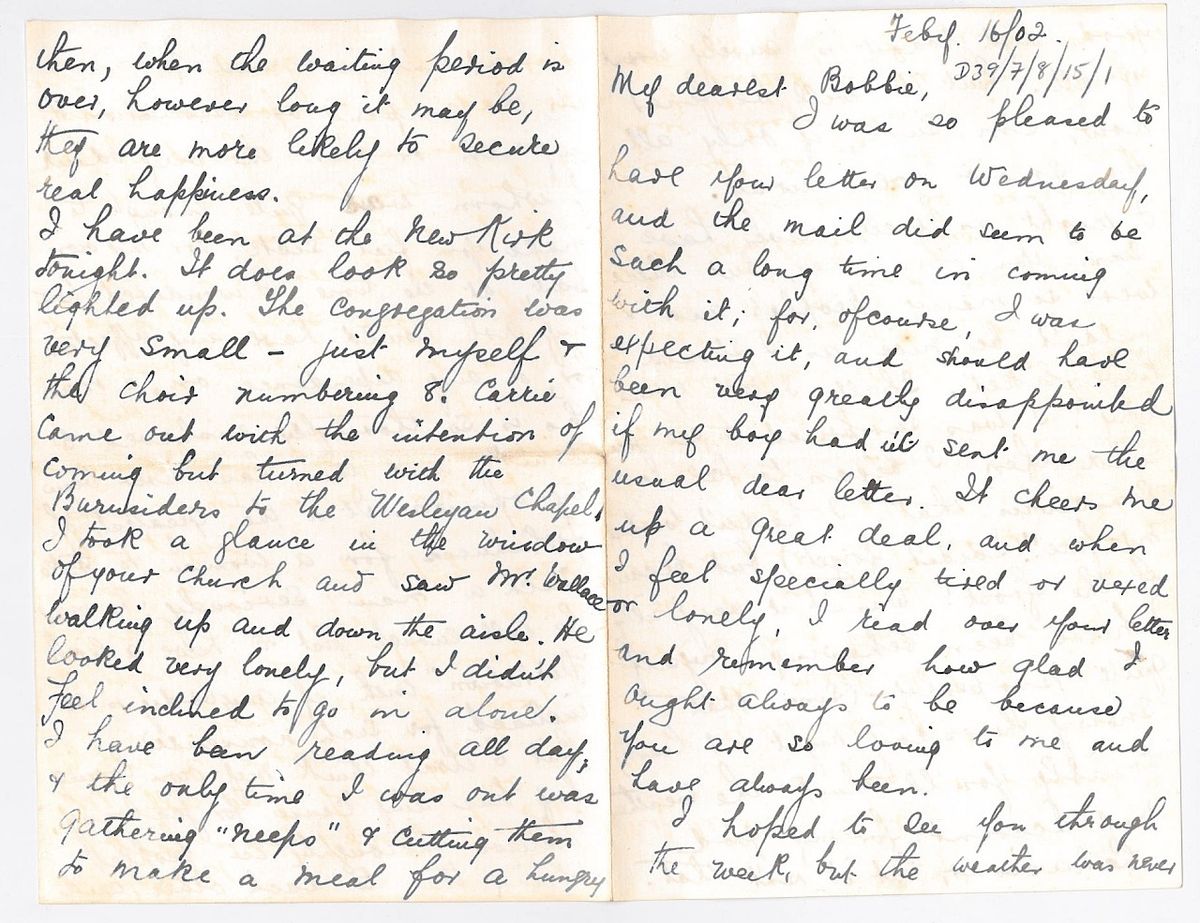 Feby. 16/02.
D39/7/8/15/1
My dearest Bobbie,
I was so pleased to
have your letter on Wednesday,
and the mail did seem to be
such a long time in coming
with it; for, ofcourse, I was
expecting it, and should have
been very greatly disappointed
if my boy had n't sent me the
usual dear letter. It cheers me
up a great deal, and when
I feel specially tired or vexed
or lonely, I read over your letter
and remember how glad I
ought always to be because
you are so loving to me and
have always been.
I hoped to see you through
the week, but the weather was never
then, when the waiting period is
over, however long it may be,
they are more likely to secure
real happiness.
I have been at the New Kirk
tonight. It does look so pretty
lighted up. The congregation was
very small – just myself &
the choir numbering 8. Carrie
came out with the intention of
coming but turned with the
Burnsiders to the Wesleyan Chapel.
I took a glance in the window
of your church and saw Mr. Wallace
walking up and down the aisle. He
looked very lonely, but I didn't
feel inclined to go in alone.
I have been reading all day,
& the only time I was out was
gathering "neeps" & cutting them
to make a meal for a hungry